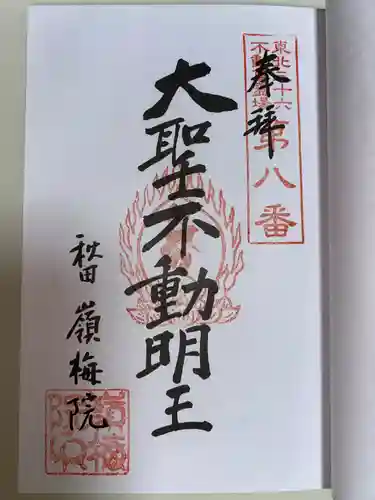 東北三十六
不動尊霊場
第八番
奉拝
大聖不動明王
秋田
嶺梅院